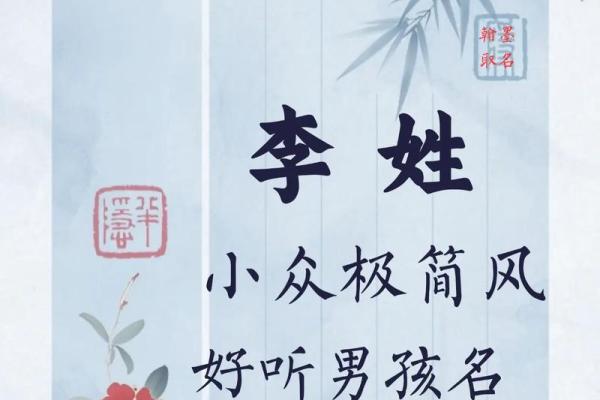 翰墨
取名
李姓
小众极简风
好听男孩名
半隐